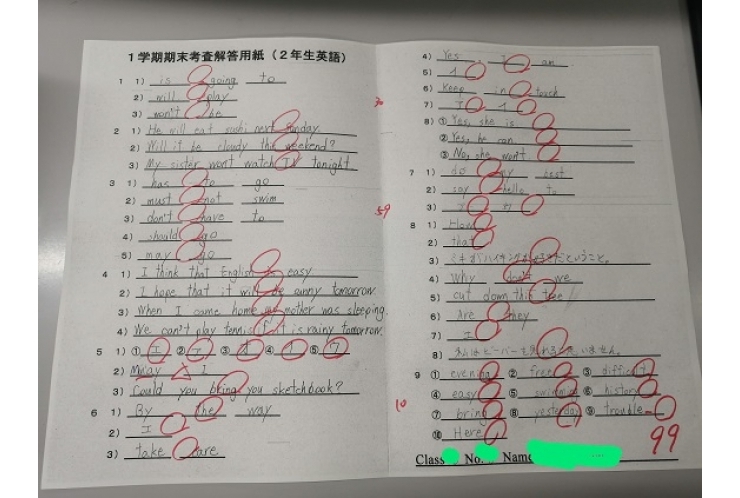 1学期期末考査解答用紙(2年生英語)
1 1) is going to
2) will play
3) won't be
2 1) He will eat sushi next Sunday.
2) Will it be cloudy this weekend?
3) My sister won't watch TV tonight.
3 1) has to go
2) must not swim
3) don't have to
4) should go
5) may go
4 1) I think that English is easy.
2) I hope that it will be sunny tomorrow.
3) When I came home my mother was sleeping.
4) We can't play tennis if it is rainy tomorrow.
5 1) ① エ ② ア ③ ④ イ ⑤ ウ
2) May I
3) Could you bring you sketchbook?
6 1) By the way
2) エ
3) take care
30
59
10
4) Yes, I am
5) イ
6) Keep in touch
7) ア イ
8) ① Yes, she is.
② Yes, he can.
③ No, she won't.
7 1) do my best
2) say hello to
3)
8 1) How
2) that
3) ミキがハイキングが好きだということ。
4) Why don't we
5) cut down this tree
6) Are they
7) エ
8) 私はビーバーを ません。
9 ① evening ② free ③ difficult
④ easy ⑤ swimming ⑥ history
⑦ bring ⑧ yesterday ⑨ trouble
⑩ Here
99
Class No. Name